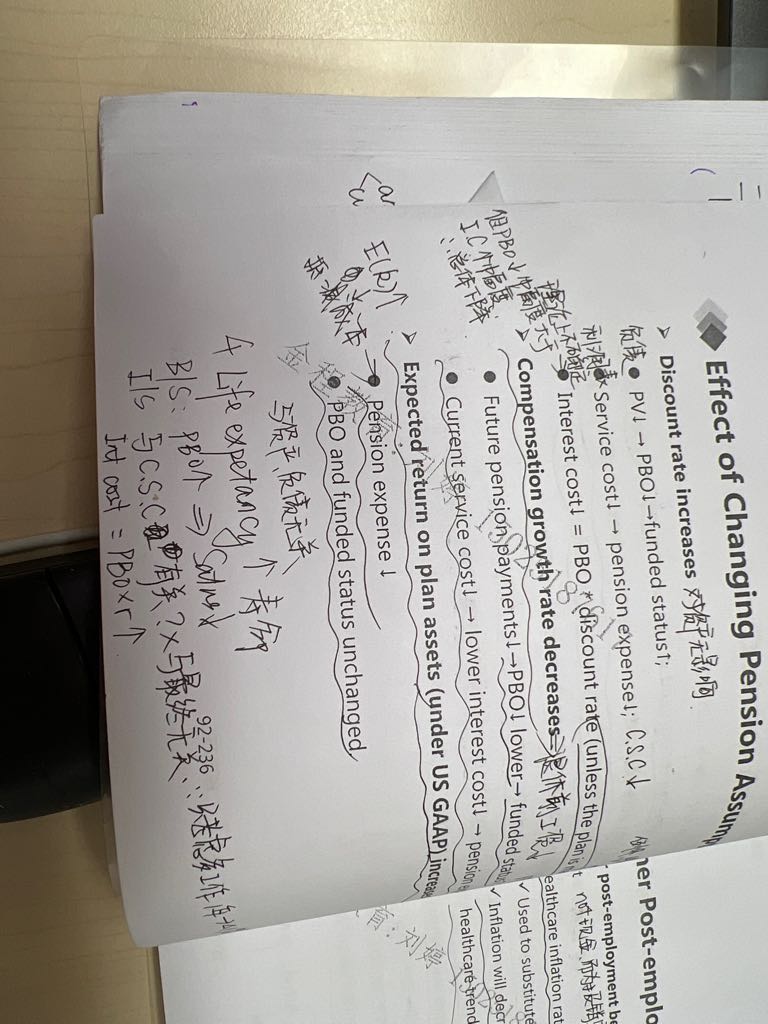 Effect of Changing Pension Assump
➢ Discount rate increases 对资产无影响
负债 ● PV↓ → PBO↓→funded status↑;
● Service cost↓ → pension expense↓; C.S.C↓
● Interest cost↓ = PBO * discount rate (unless the plan is
但PBO↓幅度大于
IC↑幅度
∴总体下降
➢ Compensation growth rate decreases
● Future pension payments↓→PBO↓ lower→ funded statu
● Current service cost↓ → lower interest cost↓ → pension e
➢ Expected return on plan assets (under US GAAP) increase
E(R)↑
● Pension expense↓
● PBO and funded status unchanged
与资产、负债无关
4 Life expetancy ↑ 寿命
B/S: PBO↑ ⇒
I/S 与C.S.C 有关? × 与最终无关
Int cost = PBO×r↑
92-236
ner Post-emplo
post-employment be
ealthcare inflation rat
✓ Used to substitute
✓ Inflation will decr
healthcare trend